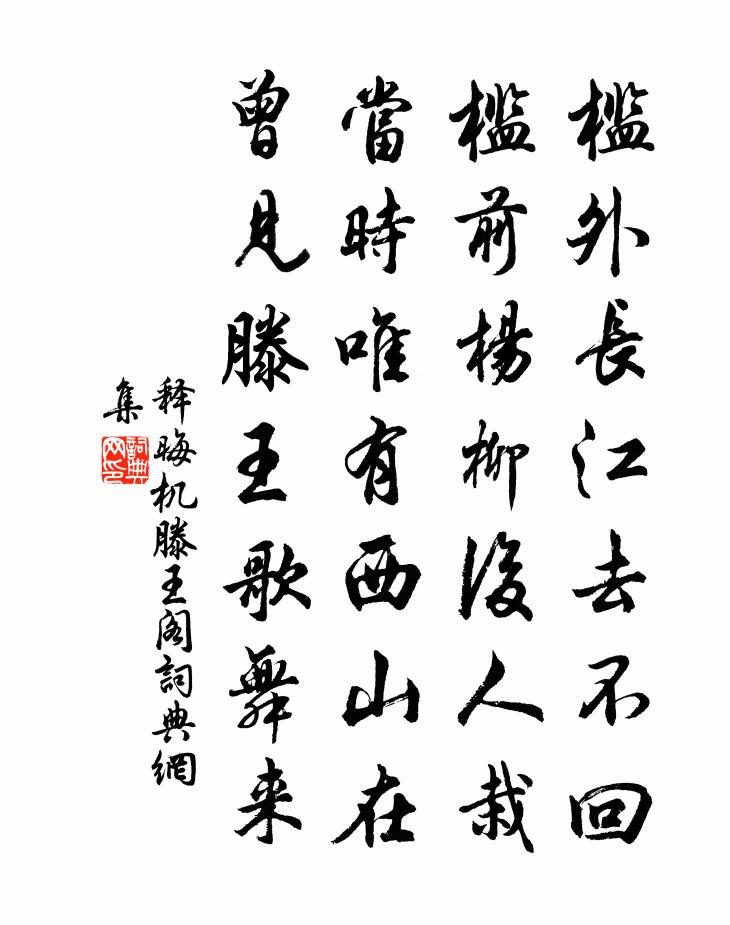 檻外長江去不回
檻前楊柳後人栽
當時唯有西山在
曾見滕王歌舞来
释晦机滕王阁詞典網
集
詞典
网印